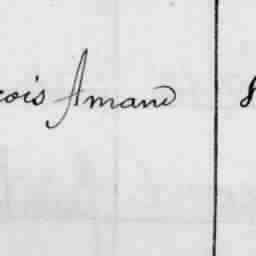 çois Amand